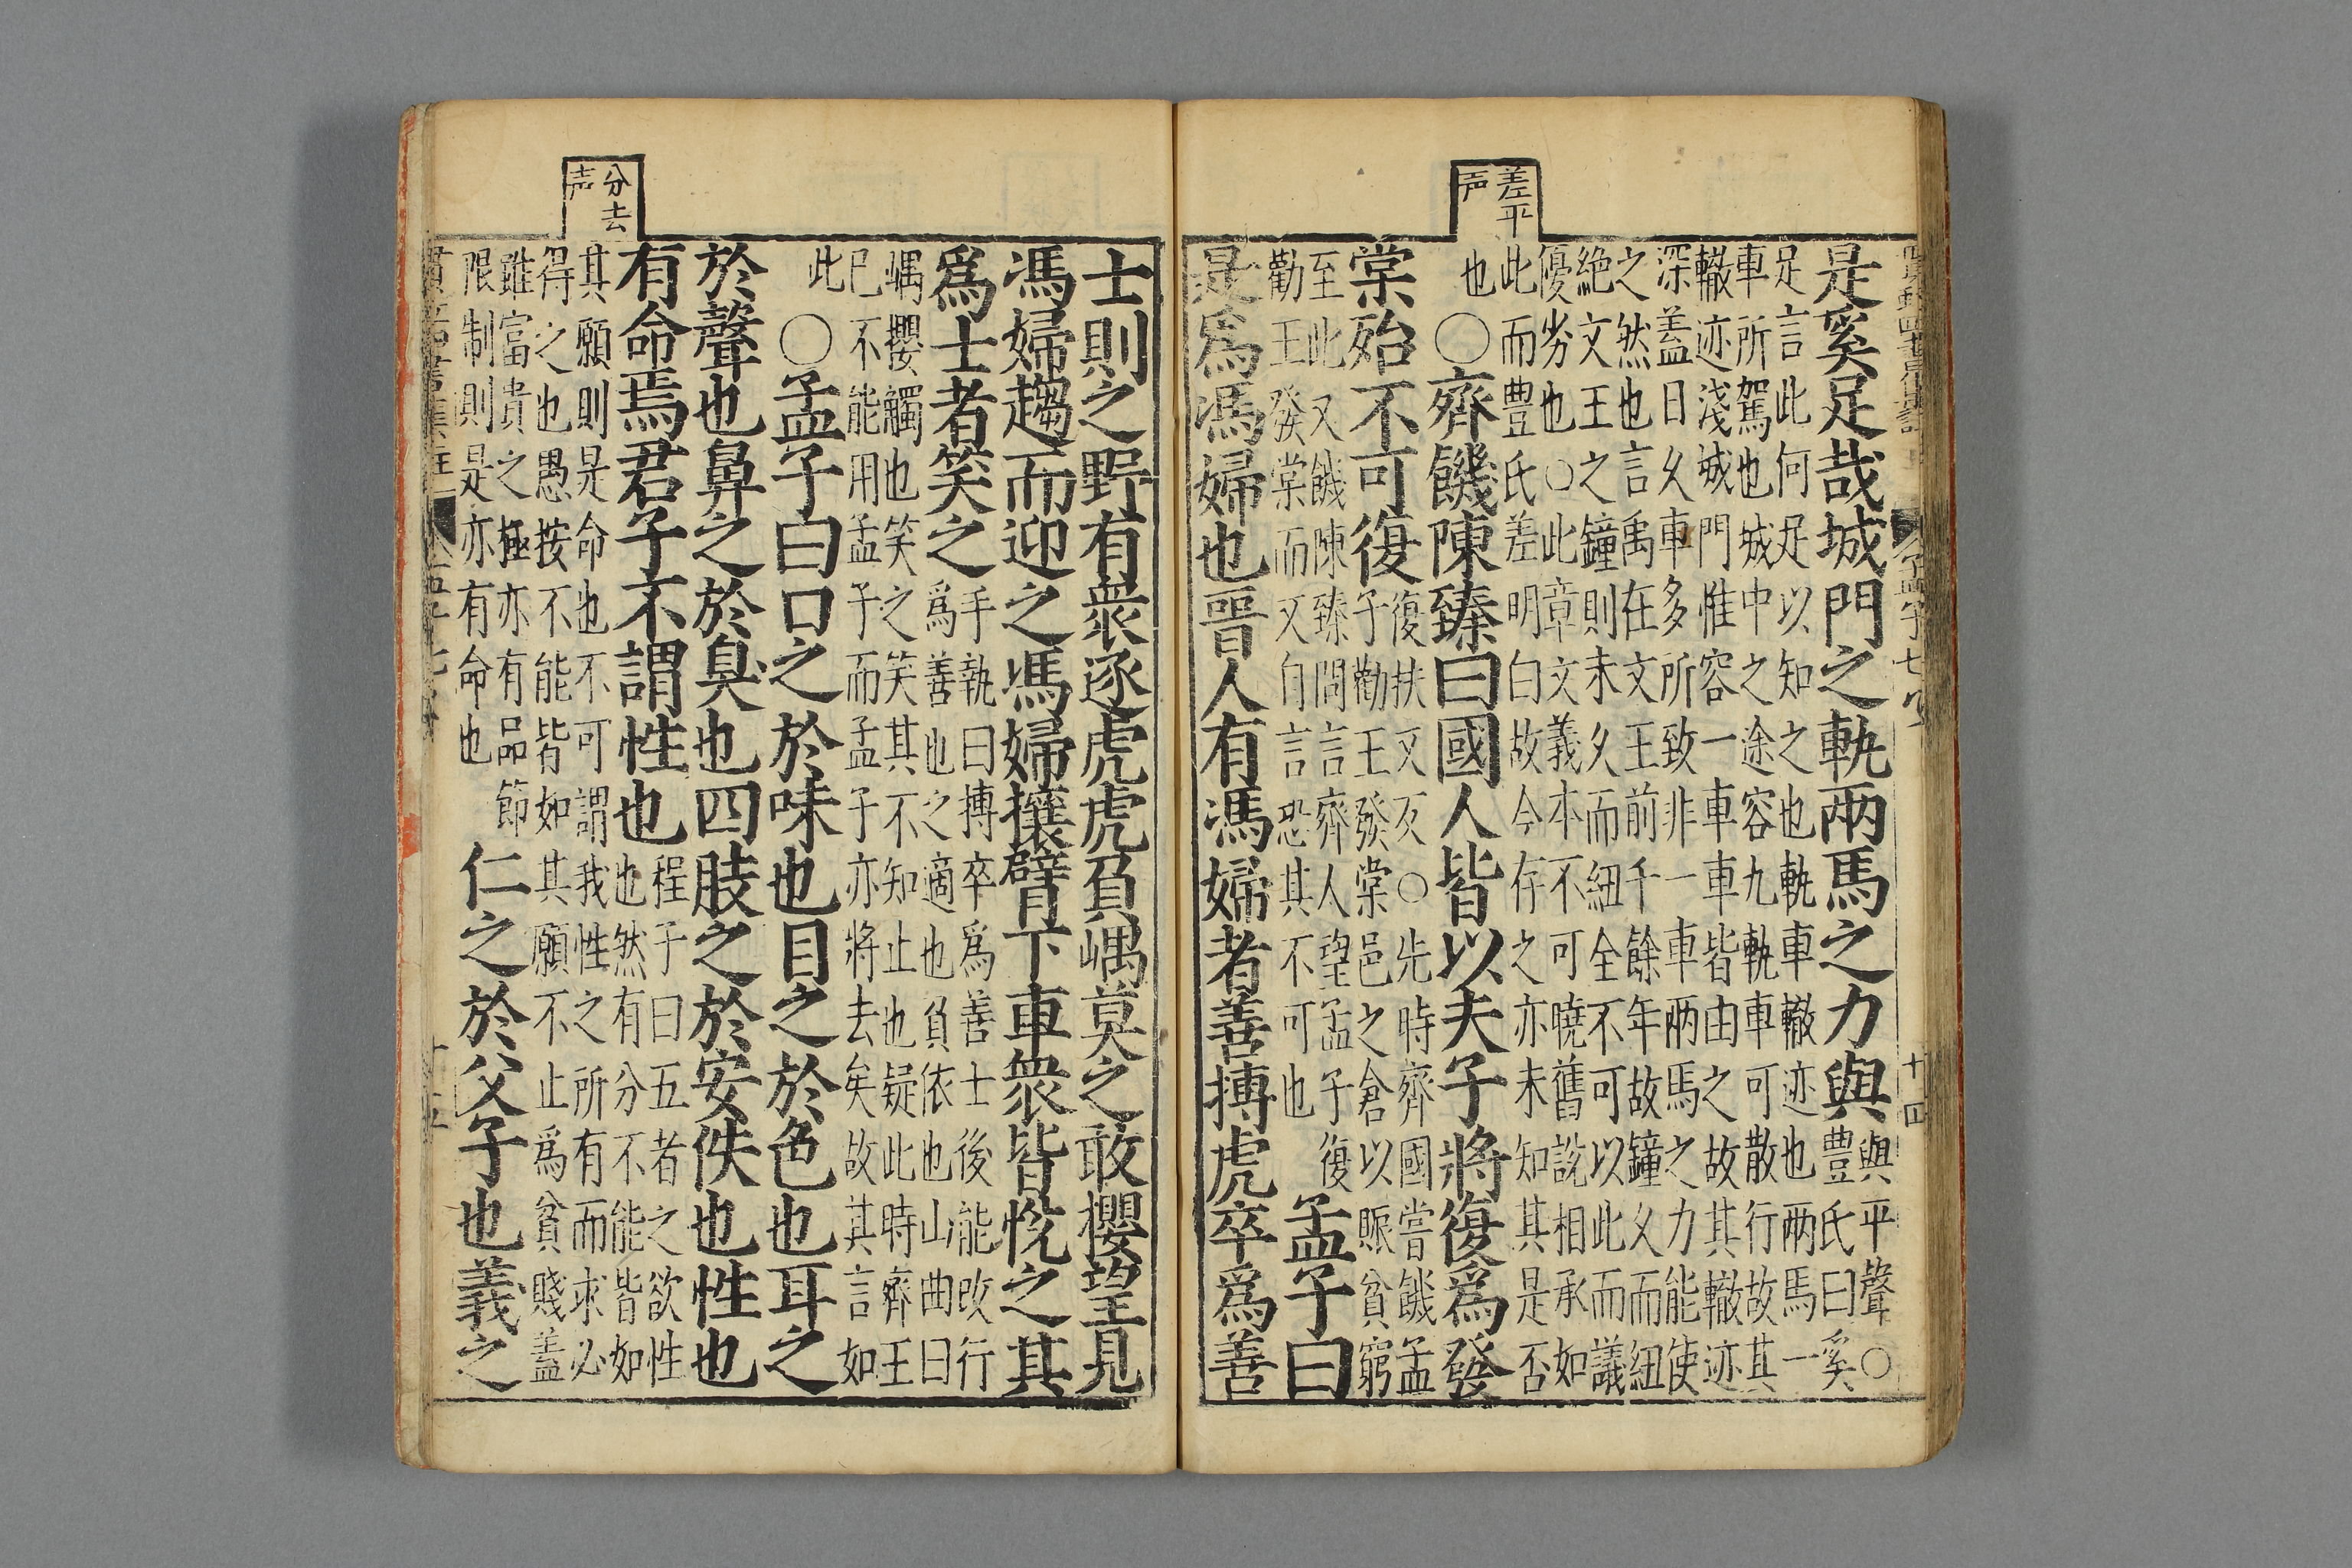 差平
声
孟子七 十四
是奚足哉城門之軌兩馬之力與
與平聲○
豐氏曰奚
足言此何足以知之也軌車轍迹也兩馬一
車所駕也城中之途容九軌車可散行故其
轍迹淺城門惟容一車車皆由之故其轍迹
深盖日久車多所致非一車兩馬之力能使
之然也言禹在文王前千餘年故鐘久而紐
絶文王之鐘則未久而紐全不可以此而議
優劣也○此章文義本不可曉舊說相承如
此而豐氏差明白故今存之亦未知其是否
也
○齊饑陳臻曰國人皆以夫子將復爲發
棠殆不可復
復扶又反○先時齊國嘗饑孟
子勸王發棠邑之倉以賑貧窮
至此又饑陳臻問言齊人望孟子復
勸王發棠而又自言恐其不可也
孟子曰
是爲馮婦也晉人有馮婦者善搏虎卒爲善
分去
声
士則之野有衆逐虎虎負嵎莫之敢攖望見
馮婦趨而迎之馮婦攘臂下車衆皆悅之其
爲士者笑之
手執曰搏卒爲善士後能改行
爲善也之適也負依也山曲曰
嵎攖觸也笑之笑其不知止也疑此時齊王
已不能用孟子而孟子亦將去矣故其言如
此
○孟子曰口之於味也目之於色也耳之
於聲也鼻之於臭也四肢之於安佚也性也
有命焉君子不謂性也
程子曰五者之欲性
也然有分不能皆如
其願則是命也不可謂我性之所有而求必
得之也愚按不能皆如其願不止爲貧賤盖
雖富貴之極亦有品節
限制則是亦有命也
仁之於父子也義之